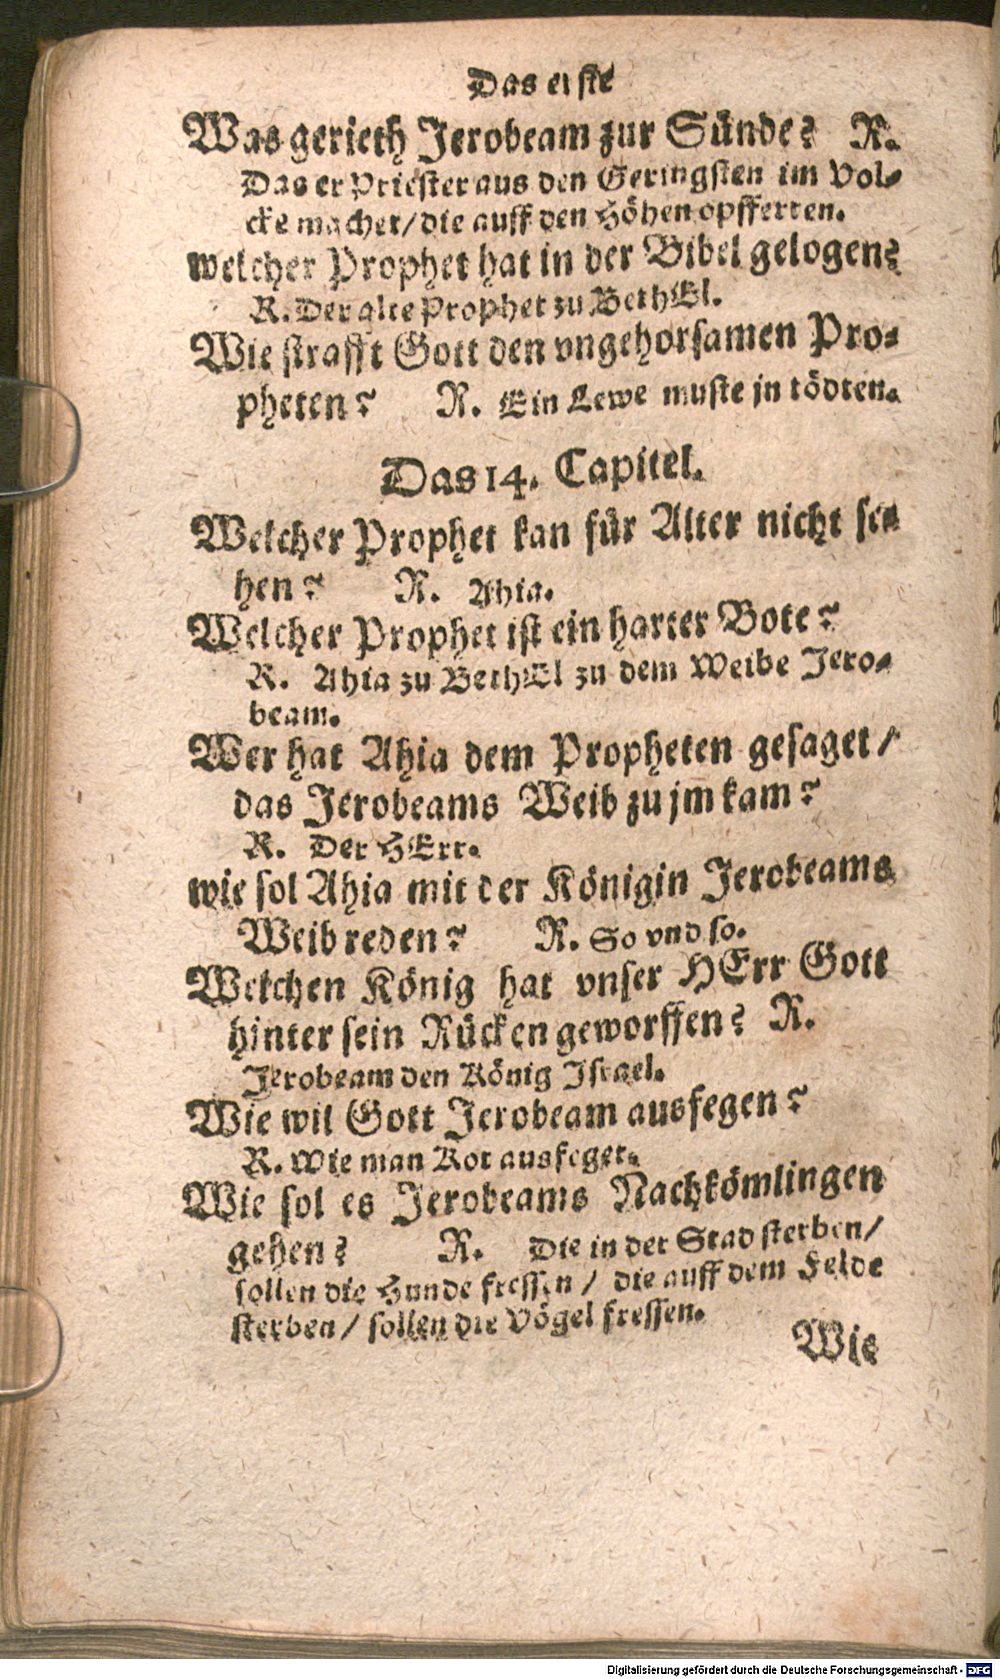 Das erste
Was gerieth Jerobeam zur Sünde? R.
Das er Priester aus den Geringsten im Vol-
cke machet/ die auff den Höhen opfferten.
welcher Prophet hat in der Bibel gelogen?
R. Der alte Prophet zu BethEl.
Wie strafft Gott den vngehorsamen Pro-
pheten? R. Ein Lewe muste jn tödten.
Das 14. Capitel.
Welcher Prophet kan für Alter nicht se-
hen? R. Ahia.
Welcher Prophet ist ein harter Bote?
R. Ahia zu BethEl zu dem Weibe Jero-
beam.
Wer hat Ahia dem Propheten gesaget/
das Jerobeams Weib zu jm kam?
R. Der HErr.
wie sol Ahia mit der Königin Jerobeams
Weib reden? R. So vnd so.
Welchen König hat vnser HErr Gott
hinter sein Rücken geworffen? R.
Jerobeam den König Israel.
Wie wil Gott Jerobeam ausfegen?
R. Wie man Kot ausfeget.
Wie sol es Jerobeams Nachkömlingen
gehen? R. Die in der Stad sterben/
sollen die Hunde fressen/ die auff dem Felde
sterben/ sollen die Vögel fressen.
Wie
Digitalisierung gefördert durch die Deutsche Forschungsgemeinschaft - DFG